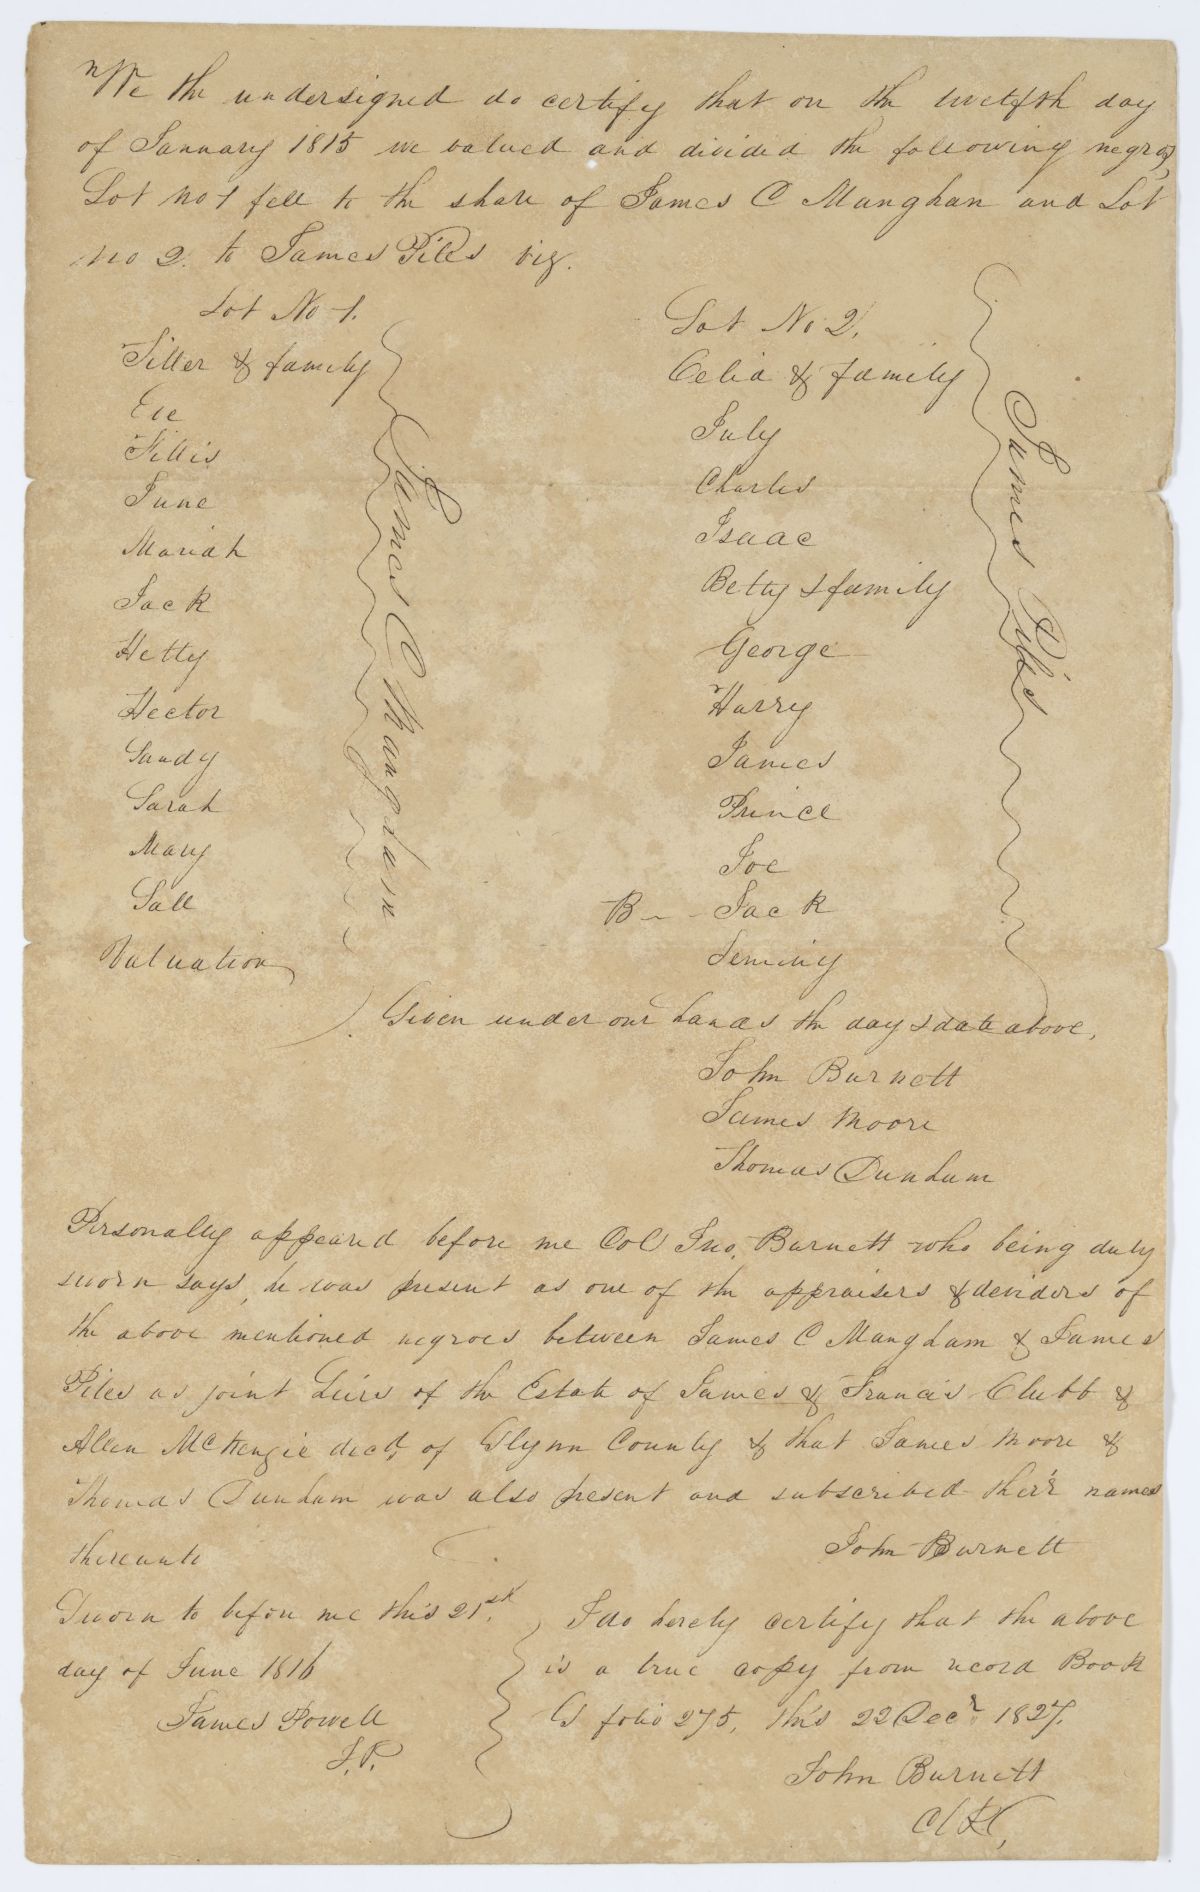 We the undersigned do certify that on the twelfth day
of January 1815 we valued and divided the following negros,
Lot no 1 fell to the share of James C Manghan and Lot
no 2. to James Piles viz.
Lot No 1.
Tiller & family
Eve
Fillis
June
Mariah
Jack
Hetty
Hector
Sandy
Sarah
Mary
Sall
Valuation
James C Mangham
Lot No 2.
Celia & family
July
Charles
Isaac
Betty & family
George
Harry
James
Prince
Joe
B - - Jack
James Piles
Given under our hands the day & date above.
John Burnett
James Moore
Thomas Dunham
Personally appeared before me Col Jno. Burnett who being duly
sworn says, he was present as one of the appraisers & deviders of
the above mentioned negroes between James C Mangham & James
Piles as joint heirs of the Estate of James & Francis Clubb &
Allen McKenzie decd, of Glynn County & that James Moore &
Thomas Dunham was also present and subscribed their names
thereunto
John Burnett
Sworn to before me this 21st
day of June 1816
James Powell
J.P.
I do herely certify that the above
is a true copy from record Book
G folio 275, this 22 Decr 1827.
John Burnett
Clk,